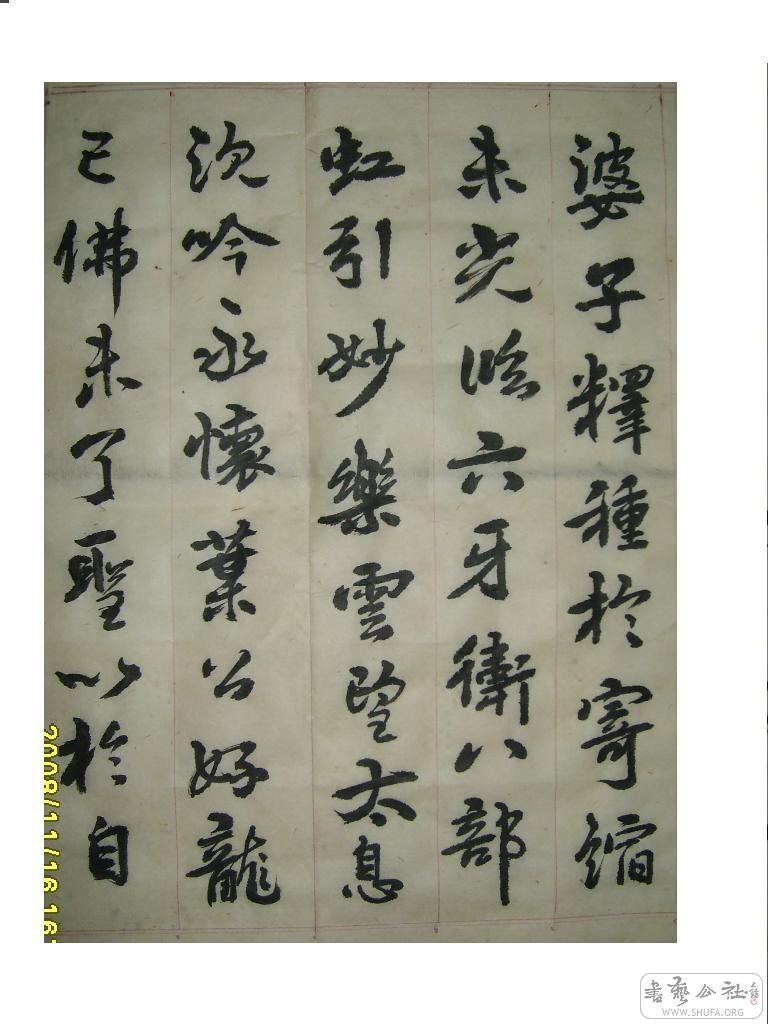 婆子釋種於寄縮
未光晗六牙衛八部
虹引妙樂雲望太息
沉吟永懷葉公好龍
己佛未了聖以於自
2008/11/16 16:
書藝公社
WWW.SHUFA.ORG